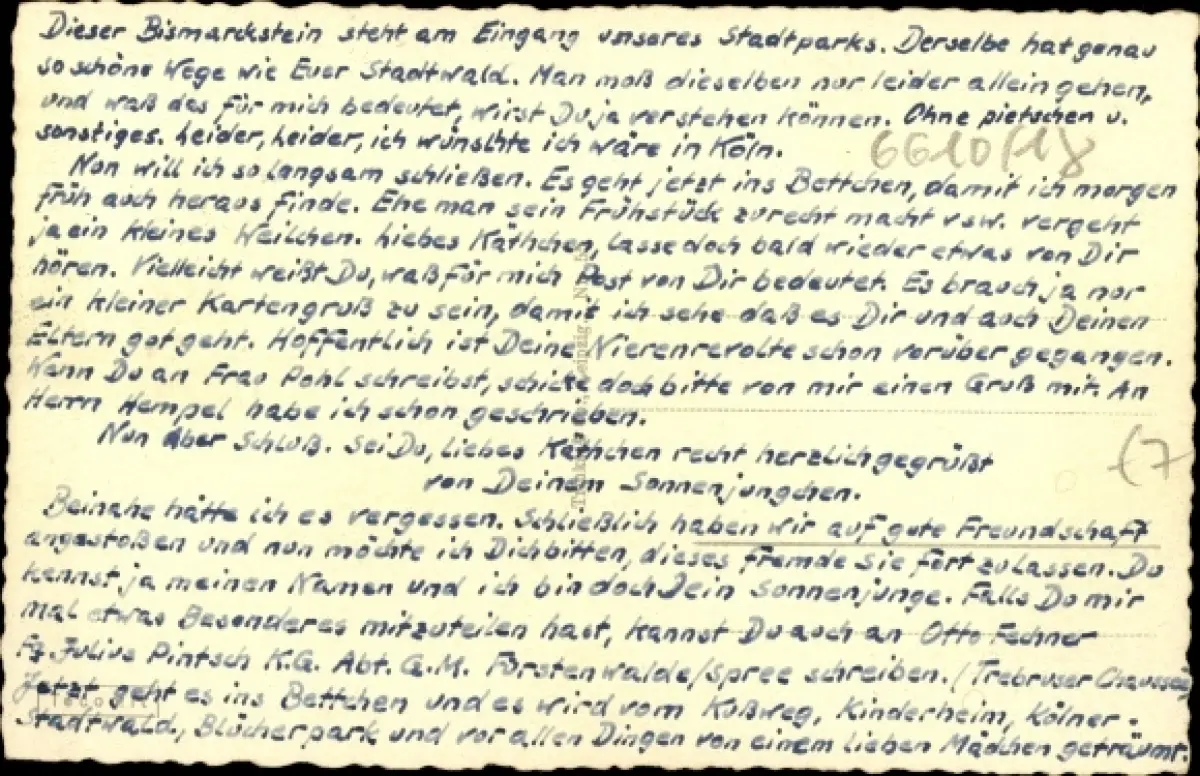 Dieser Bismarckstein steht am Eingang unseres Stadtparks. Derselbe hat genau
so schöne Wege wie Euer Stadtwald. Man muß dieselben nur leider allein gehen,
und waß des für mich bedeutet, wirst Du ja verstehen können. Ohne pietschen u.
sonstiges. Leider, Leider, ich wünschte ich wäre in Köln.
6610/18
Nun will ich so langsam schließen. Es geht jetzt ins Bettchen, damit ich morgen
früh auch heraus finde. Ehe man sein Frühstück zurecht macht usw. vergeht
ja ein kleines Weilchen. Liebes Käthchen, lasse doch bald wieder etwas von Dir
hören. Vielleicht weißt Du, waß für mich Post von Dir bedeutet. Es brauch ja nur
ein kleiner Kartengruß zu sein, damit ich sehe daß es Dir und auch Deinen
Eltern gut geht. Hoffentlich ist Deine Nierenrevolte schon vorüber gegangen.
Wenn Du an Frau Pohl schreibst, schicke doch bitte von mir einen Gruß mit. An
Herrn Hempel habe ich schon geschrieben.
Nun aber Schluß. Sei Du, liebes Käthchen recht herzlich gegrüßt
von Deinem Sonnenjungchen.
Beinahe hätte ich es vergessen. Schließlich haben wir auf gute Freundschaft
angestoßen und nun möchte ich Dich bitten, dieses fremde Sie fort zu lassen. Du
kennst ja meinen Namen und ich bin doch Dein Sonnenjunge. Falls Du mir
mal etwas Besonderes mitzuteilen hast, kannst Du auch an Otto Fechner
Fa. Julius Pintsch K.G. Abt. G.M. Fürstenwalde/Spree schreiben. (Trebruser Chaussee)
Jetzt geht es ins Bettchen und es wird vom Kußweg, Kinderheim, Kölner-
Stadtwald, Blücherpark und vor allen Dingen von einem lieben Mädchen geträumt.